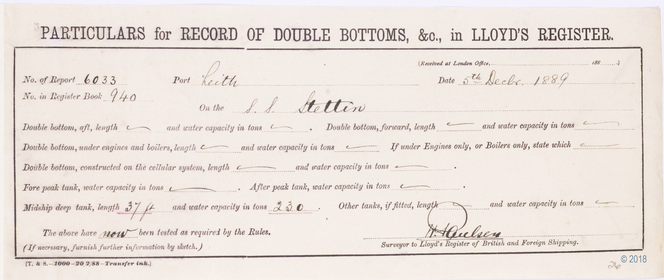 PARTICULARS for RECORD OF DOUBLE BOTTOMS, &c., in LLOYD'S REGISTER.
(Received at London Office, 188 )
No. of Report 6033 Port Leith Date 5th Decbr. 1889
No. in Register Book 940
On the S. S. Stettin
Double bottom, aft, length — and water capacity in tons — . Double bottom, forward, length — and water capacity in tons —
Double bottom, under engines and boilers, length — and water capacity in tons — If under Engines only, or Boilers only, state which —
Double bottom, constructed on the cellular system, length — and water capacity in tons — .
Fore peak tank, water capacity in tons — . After peak tank, water capacity in tons — .
Midship deep tank, length 37 ft and water capacity in tons 230 . Other tanks, if fitted, length — and water capacity in tons —
The above have now been tested as required by the Rules.
(If necessary, furnish further information by sketch.)
Surveyor to Lloyd's Register of British and Foreign Shipping.
(T. & S.—1000—20 7.88—Transfer ink.)
© 2018